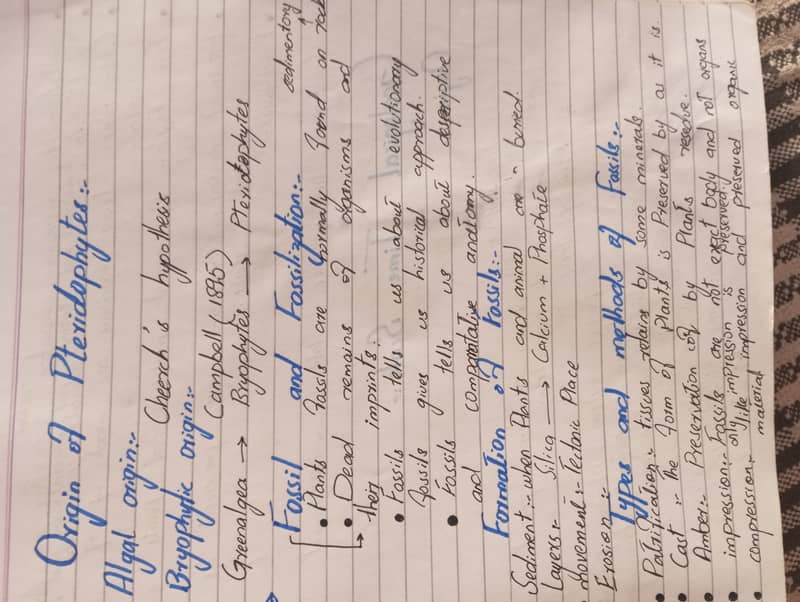 Origin of Pteridophytes:-
Algal origin:-
Cheerch's hypothesis
Bryophytic origin:-
Campbell (1895)
Greenalgea → Bryophytes → Pteridophytes
Fossil and Fossilization:-
sedimentory
• Plants fossils are normally found on rock
• Dead remains of organisms and
their imprints.
• Fossils tells us about evolutionary
fossils gives us historical approach.
• Fossils tell us about descriptive
and comparative anatomy.
Formation of Fossils:-
Sediment:- when Plants and animal are buried.
Layers:- Silica → Calcium + Phosphate
Movement:- Tectonic Place
Erosion:-
Types and methods of Fossils:-
• Patrification:- tissues retains by some minerals.
• Cast:- the form of Plants is Preserved by as it is.
Amber:- Preservation of by Plants reserve.
• impression:- Fossils are not exact body and not organs
only impression is preserved.
• compression:- like impression and preserved organic
material